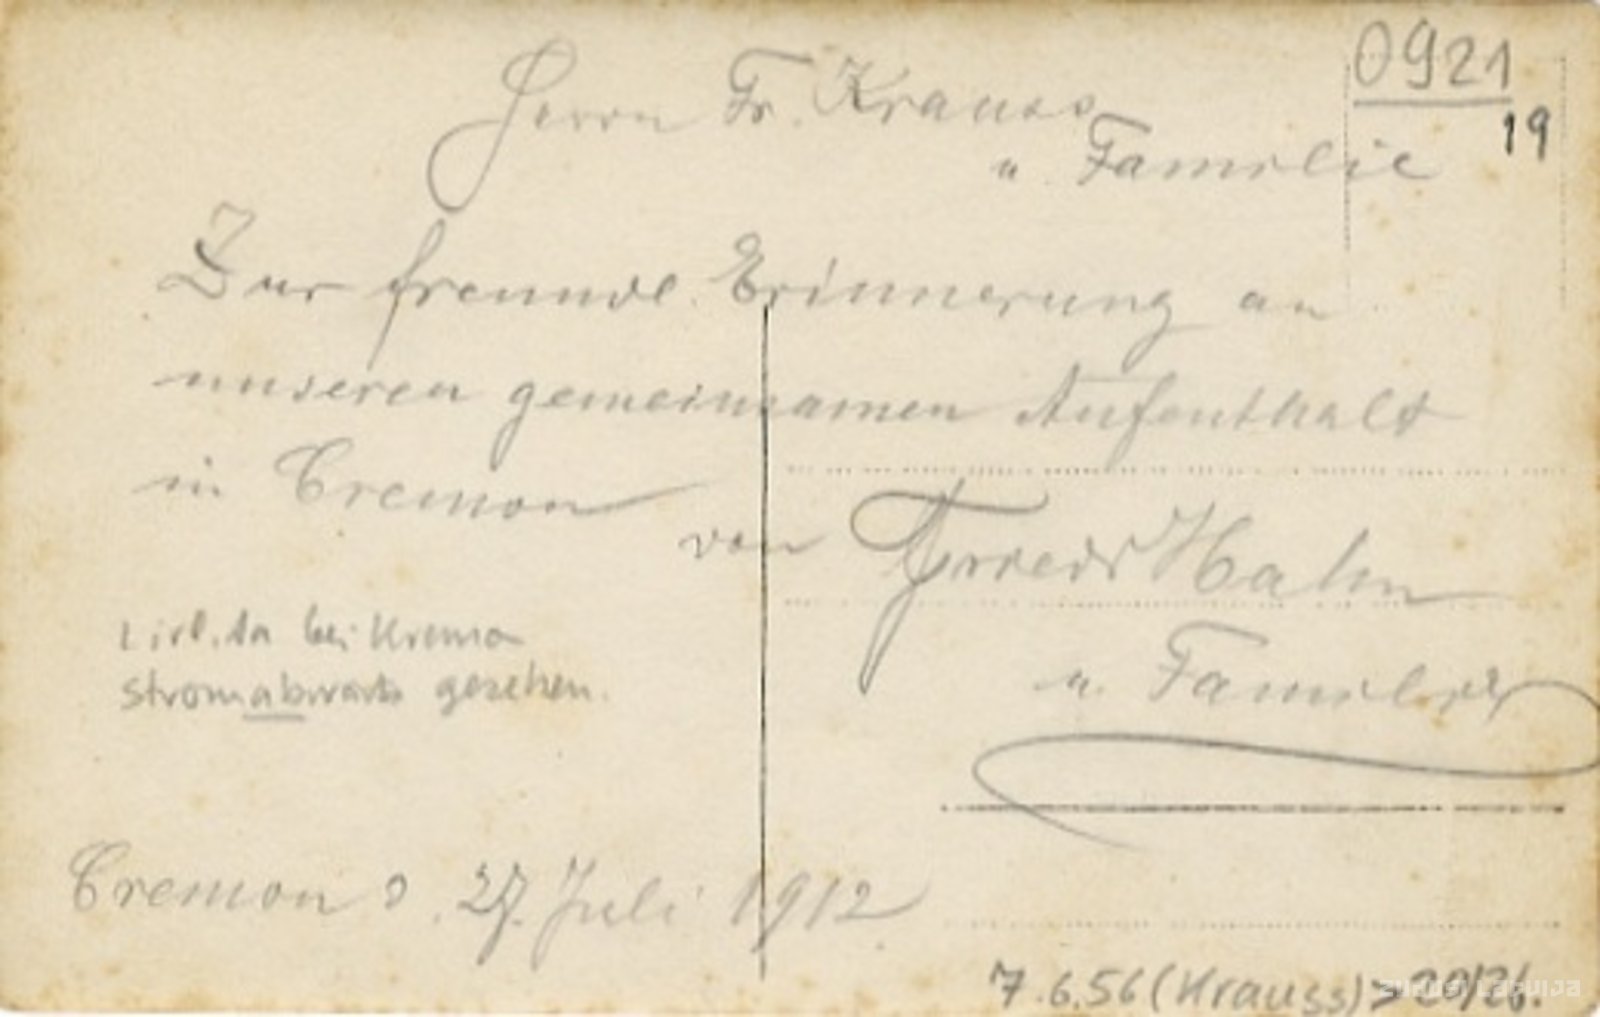 0921
19
Herrn Fr. Krauss
u. Familie
Zur freundl. Erinnerung an
unseren gemeinsamen Aufenthalt
in Cremon
von Friedr Hahn
u. Familie
Livl. Aa bei Kremon
stromabwärts gesehen.
Cremon d. 27. Juli 1912
7.6.56 (Krauss) > 20/26.